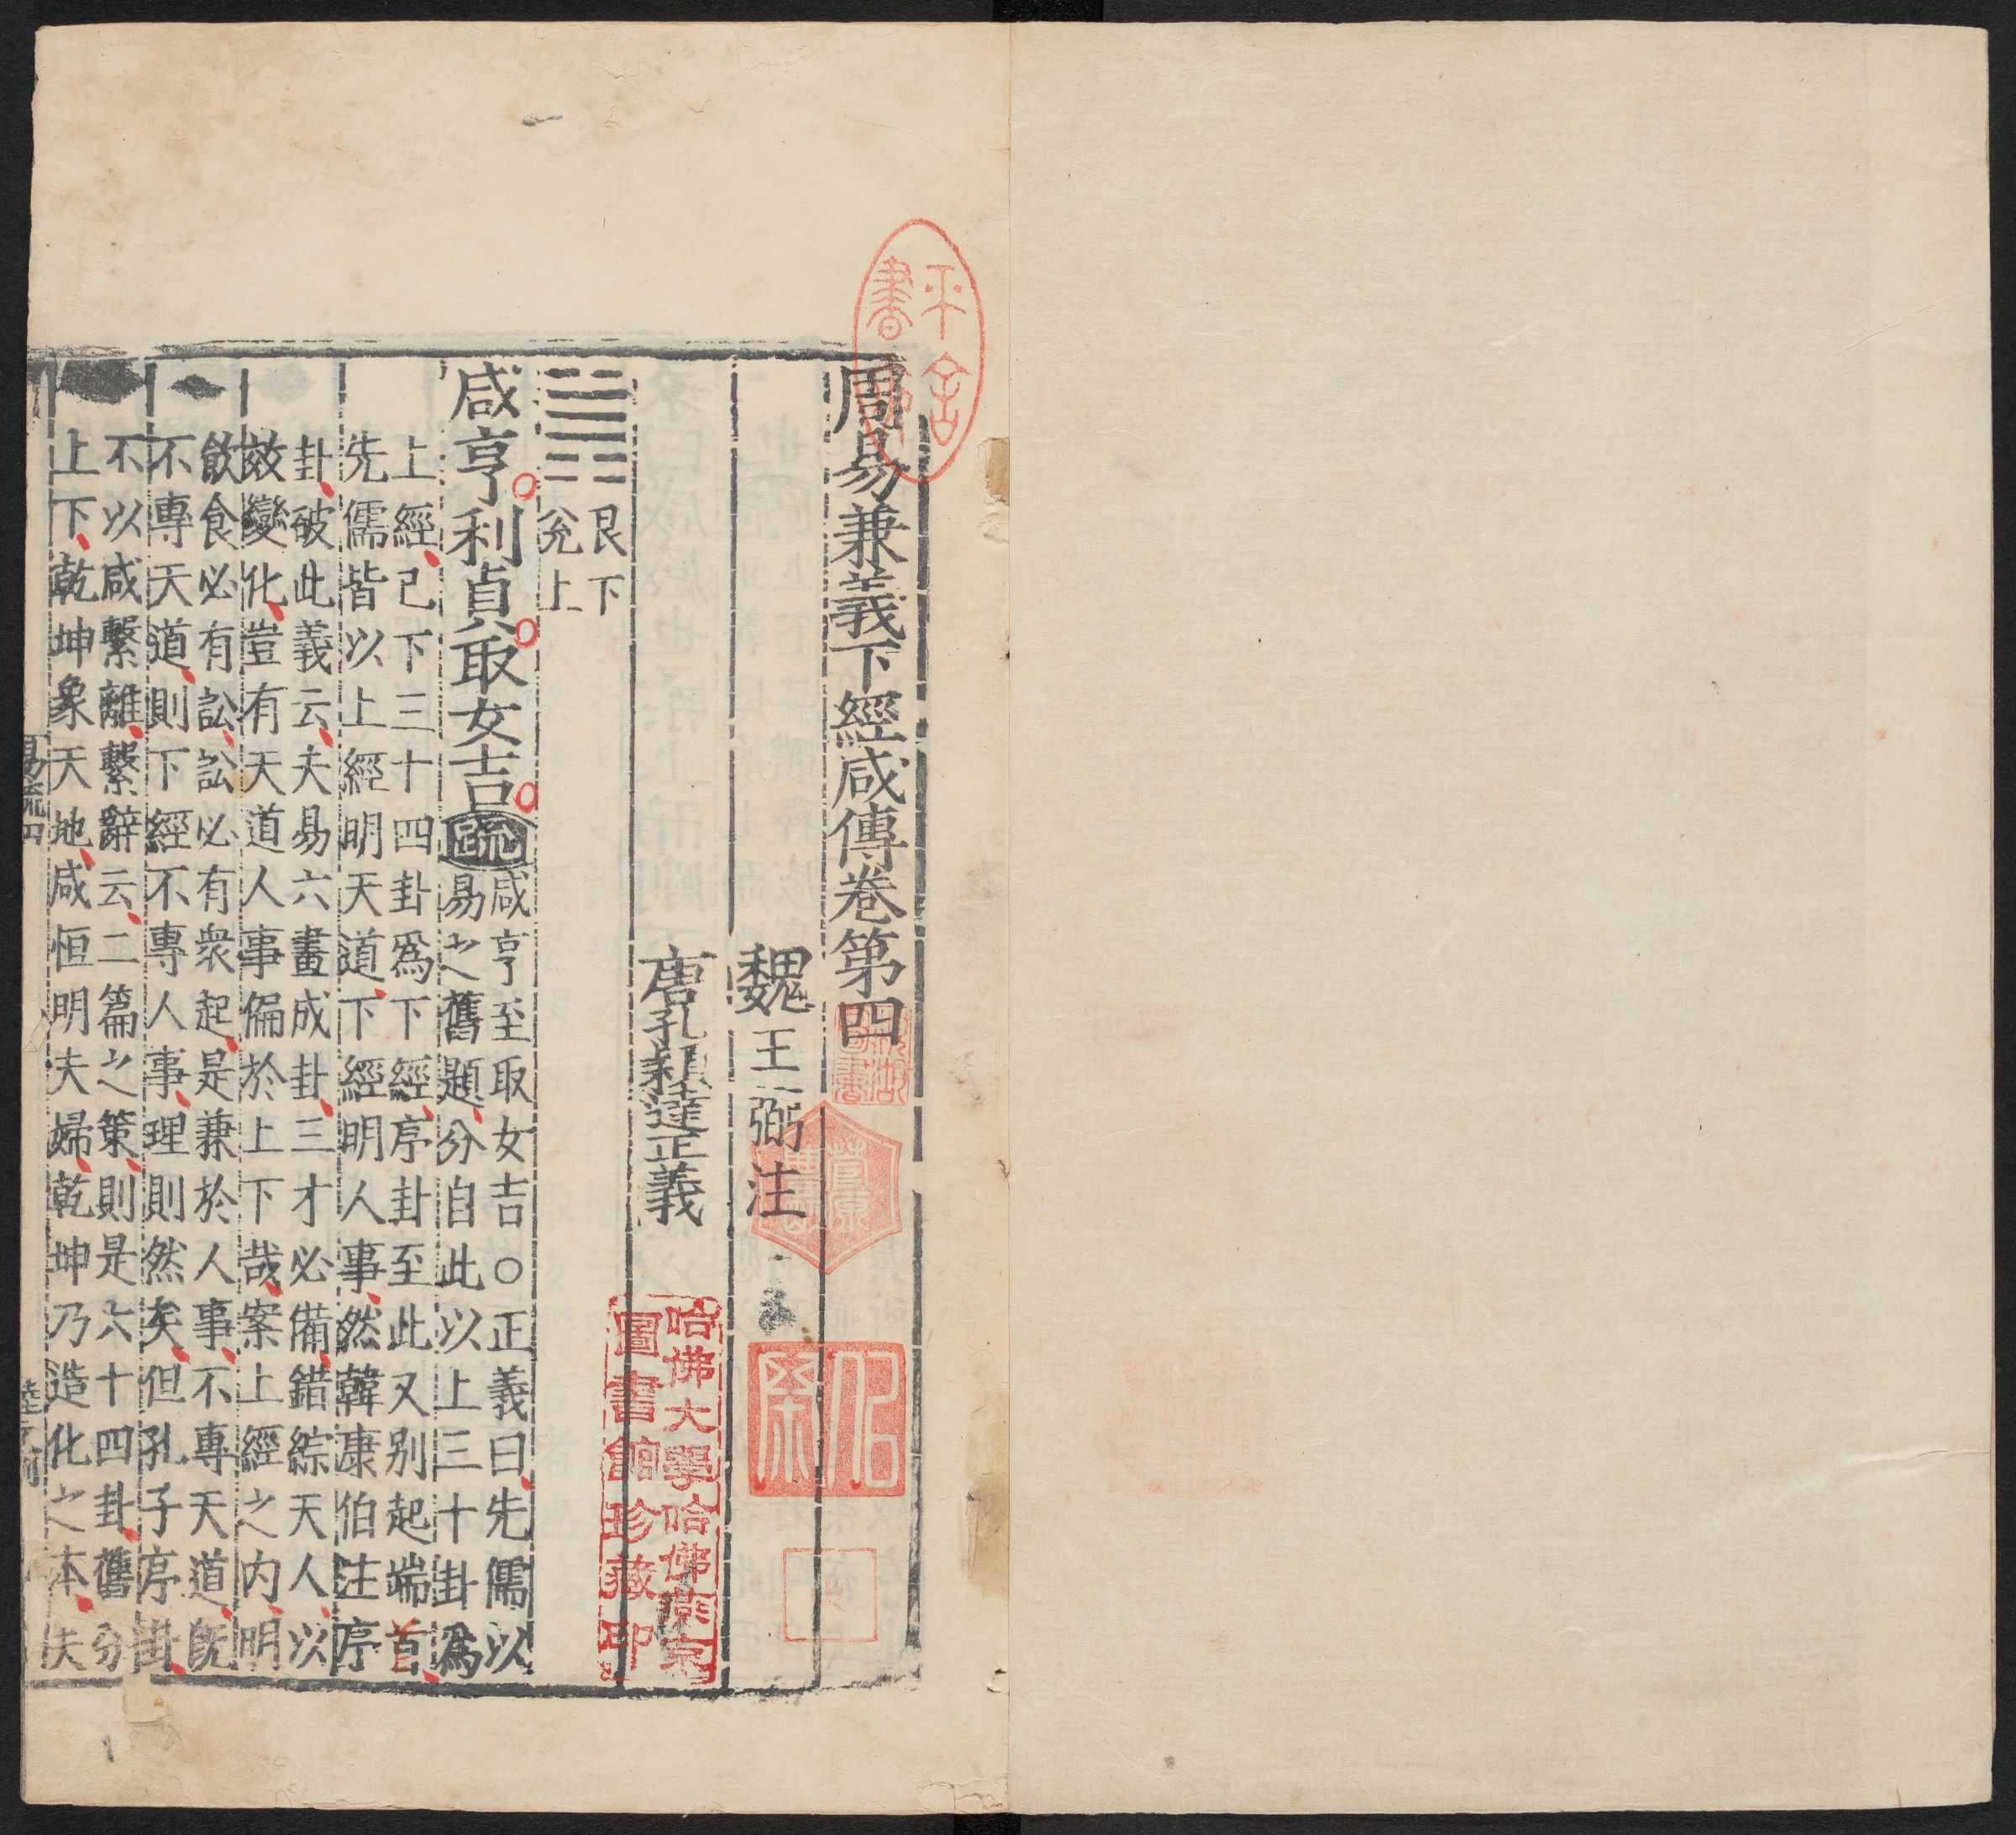 周易兼義下經咸傳卷第四
魏王弼注
唐孔穎達正義
艮下
兌上
咸亨利貞取女吉疏
咸亨至取女吉○正義曰先儒以
易之舊題分自此以上三十卦爲
上經己下三十四卦爲下經序卦至此又别起端首
先儒皆以上經明天道下經明人事然韓康伯注序
卦破此義云夫易六畫成卦三才必備錯綜天人以
效變化豈有天道人事偏於上下哉案上經之内明
飲食必有訟訟必有衆起是兼於人事不專天道既
不專天道則下經不專人事理則然矣但孔子序卦
不以咸繫離繫辭云二篇之策則是六十四卦舊分
上下乾坤象天地咸恒明夫婦乾坤乃造化之本夫
易疏四
哈佛大學哈佛燕京
圖書館珍藏印